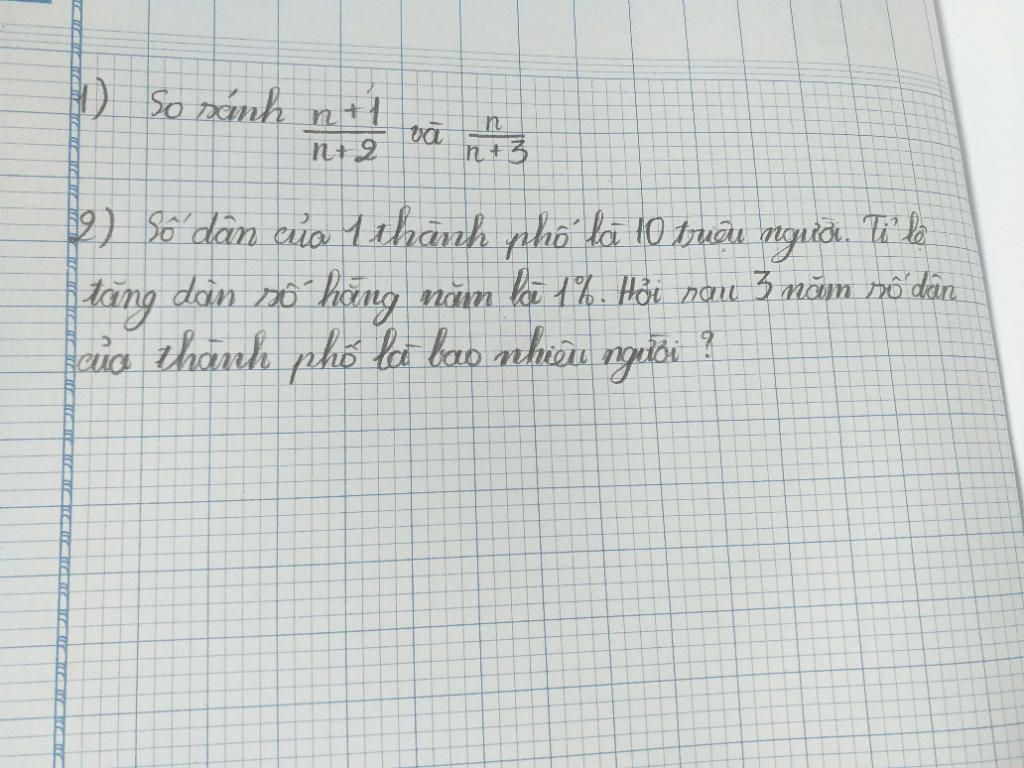 1) So sánh \frac{n+1}{n+2} và \frac{n}{n+3}
2) Số dân của 1 thành phố là 10 triệu người. Tỉ lệ
tăng dân số hằng năm là 1%. Hỏi sau 3 năm số dân
của thành phố là bao nhiêu người?